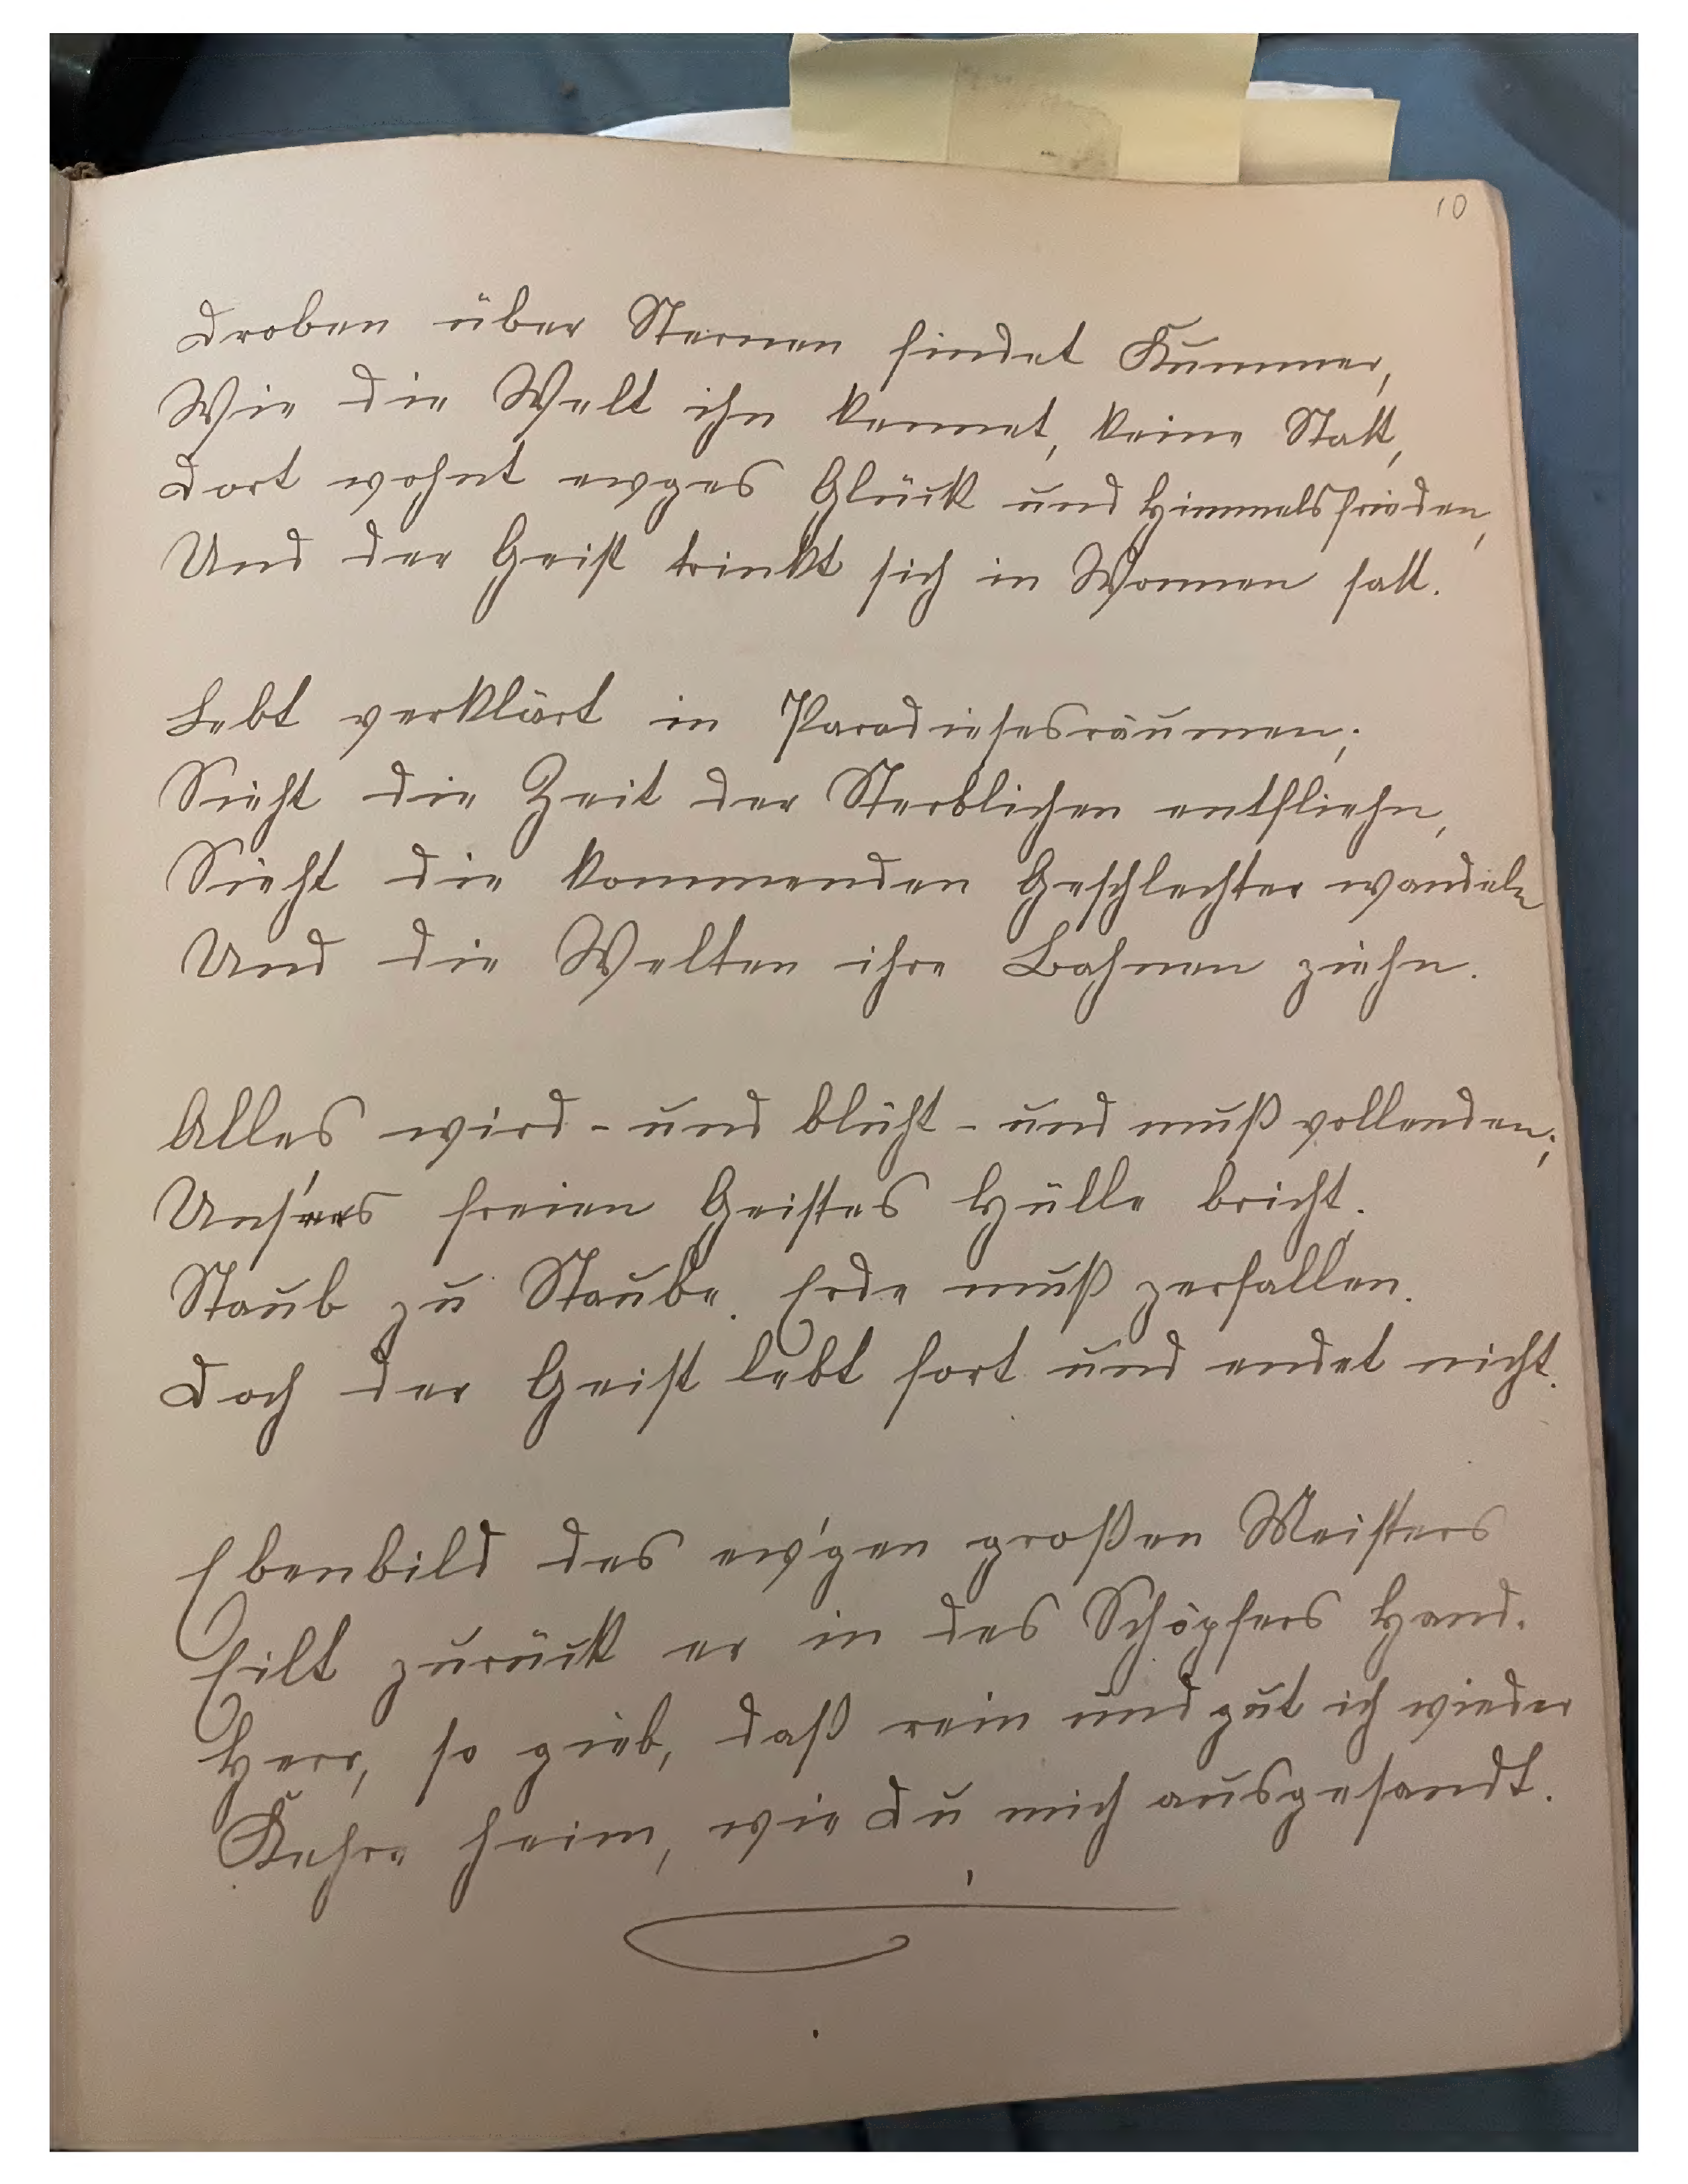 10
Droben über Sternen findet Kummer,
Wie die Welt ihn kennet, keine Statt,
Dort wohnt ewges Glück und Himmelsfrieden,
Und der Geist trinkt sich in Wonnen satt.
Lebt verklärt in Paradiesesräumen;
Sieht die Zeit der Sterblichen entfliehn,
Sieht die kommenden Geschlechter wandeln
Und die Welten ihre Bahnen ziehn.
Alles wird - und blüht - und muß vollenden;
Uns'res freien Geistes Hülle bricht.
Staub zu Staube. Erde muß zerfallen.
Doch der Geist lebt fort und endet nicht.
Ebenbild des ew'gen großen Meisters
Eilt zurück er in des Schöpfers Hand.
Herr, so gieb, daß rein und gut ich wieder
Kehre heim, wie Du mich ausgesandt.